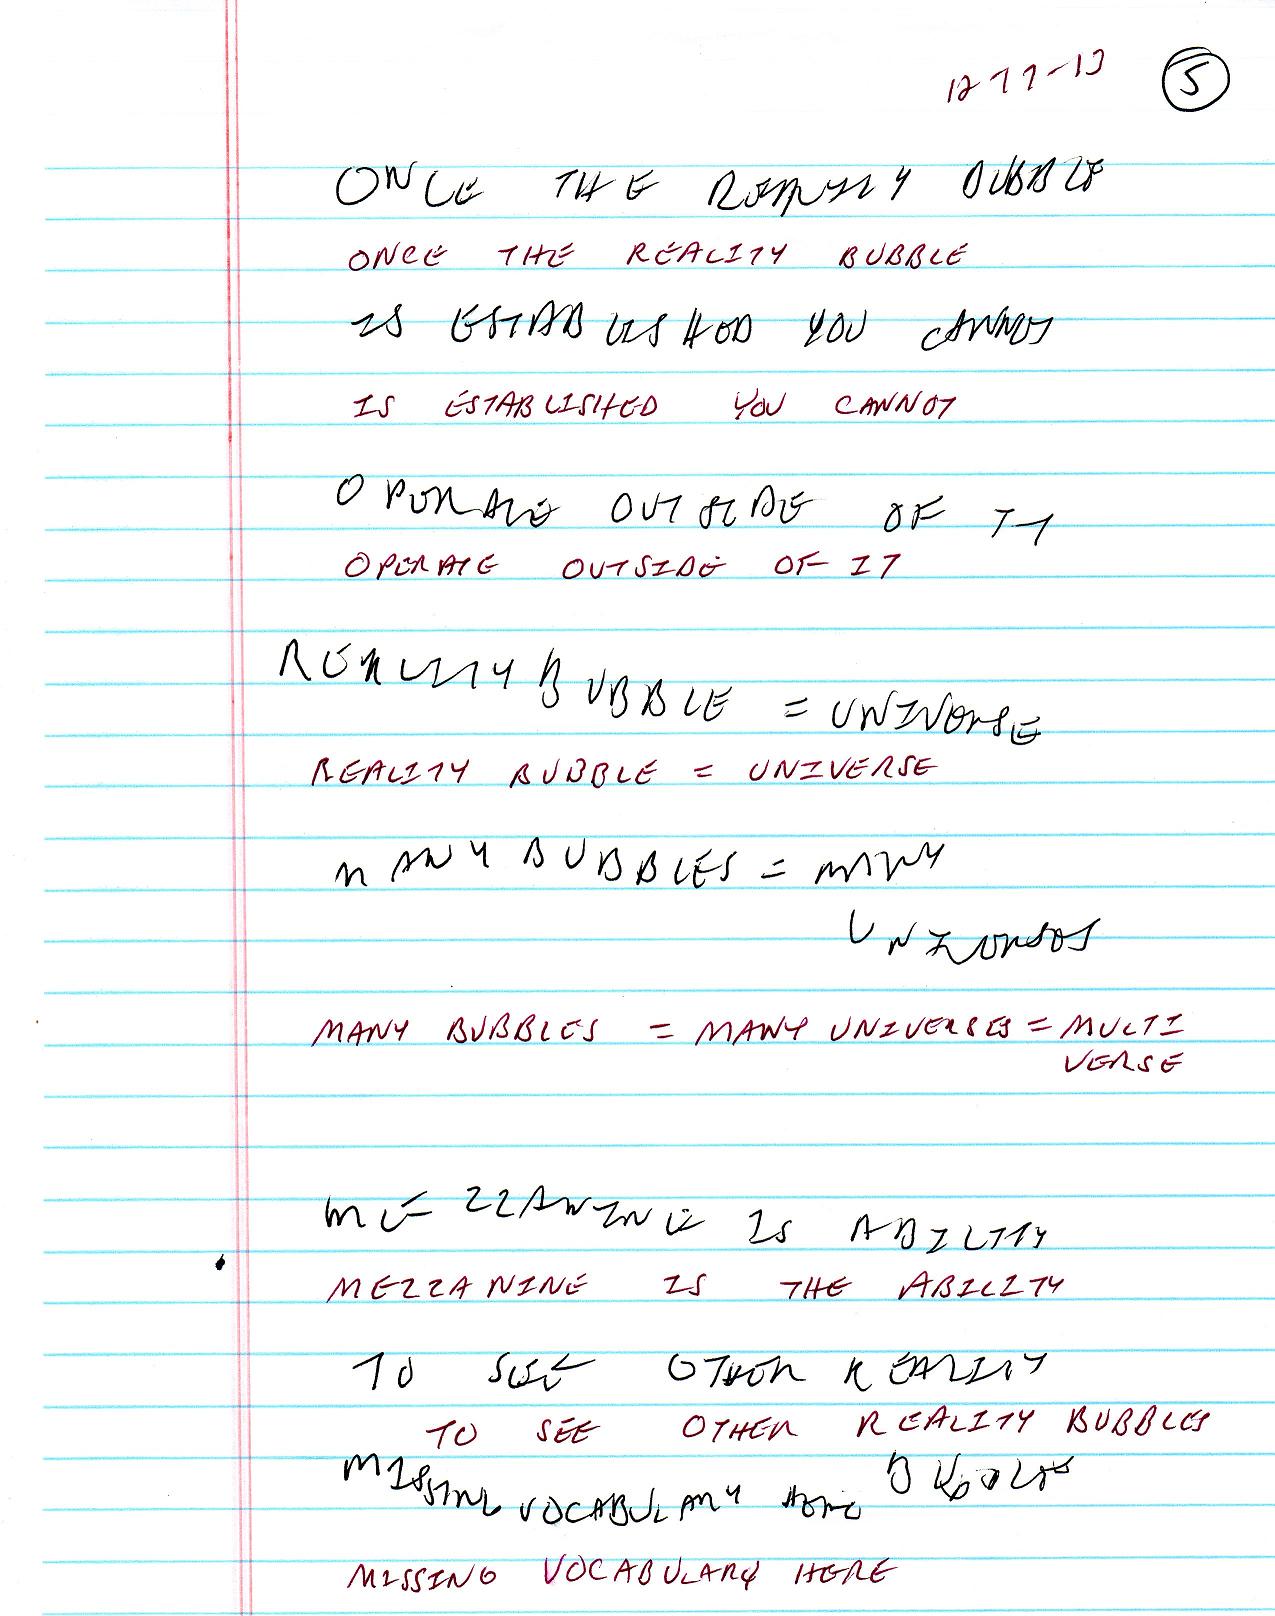 12-7-13 5
ONCE THE REALITY BUBBLE
ONCE THE REALITY BUBBLE
IS ESTABLISHED YOU CANNOT
IS ESTABLISHED YOU CANNOT
OPERATE OUTSIDE OF IT
OPERATE OUTSIDE OF IT
REALITY BUBBLE = UNIVERSE
REALITY BUBBLE = UNIVERSE
MANY BUBBLES = MANY
UNIVERSES
MANY BUBBLES = MANY UNIVERSES = MULTI
VERSE
MEZZANINE IS ABILITY
MEZZANINE IS THE ABILITY
TO SEE OTHER REALITY
TO SEE OTHER REALITY BUBBLES
BUBBLES
MISSING VOCABULARY HERE
MISSING VOCABULARY HERE